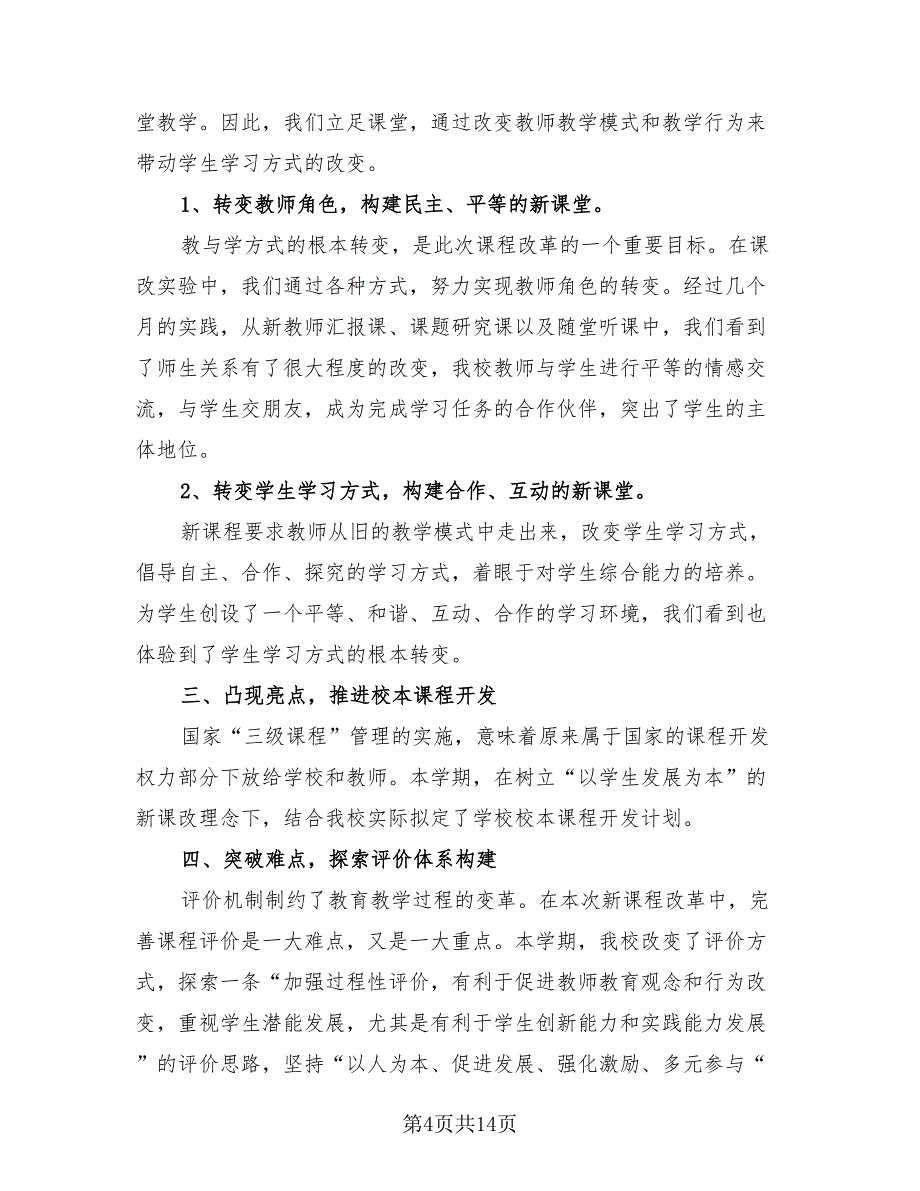 堂教学。因此，我们立足课堂，通过改变教师教学模式和教学行为来
带动学生学习方式的改变。
1、转变教师角色，构建民主、平等的新课堂。
教与学方式的根本转变，是此次课程改革的一个重要目标。在课
改实验中，我们通过各种方式，努力实现教师角色的转变。经过几个
月的实践，从新教师汇报课、课题研究课以及随堂听课中，我们看到
了师生关系有了很大程度的改变，我校教师与学生进行平等的情感交
流，与学生交朋友，成为完成学习任务的合作伙伴，突出了学生的主
体地位。
2、转变学生学习方式，构建合作、互动的新课堂。
新课程要求教师从旧的教学模式中走出来，改变学生学习方式，
倡导自主、合作、探究的学习方式，着眼于对学生综合能力的培养。
为学生创设了一个平等、和谐、互动、合作的学习环境，我们看到也
体验到了学生学习方式的根本转变。
三、凸现亮点，推进校本课程开发
国家“三级课程”管理的实施，意味着原来属于国家的课程开发
权力部分下放给学校和教师。本学期，在树立“以学生发展为本”的
新课改理念下，结合我校实际拟定了学校校本课程开发计划。
四、突破难点，探索评价体系构建
评价机制制约了教育教学过程的变革。在本次新课程改革中，完
善课程评价是一大难点，又是一大重点。本学期，我校改变了评价方
式，探索一条“加强过程性评价，有利于促进教师教育观念和行为改
变，重视学生潜能发展，尤其是有利于学生创新能力和实践能力发展
”的评价思路，坚持“以人为本、促进发展、强化激励、多元参与“
第4页共14页